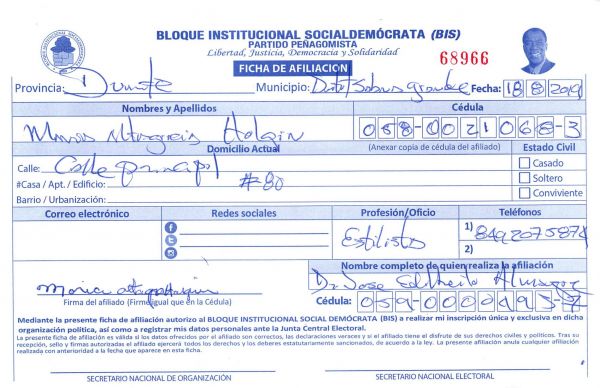 BLOQUE INSTITUCIONAL SOCIALDEMÓCRATA (BIS)
PARTIDO PEÑAGOMISTA
Libertad, Justicia, Democracia y Solidaridad
68966
FICHA DE AFILIACIÓN
Provincia: Duarte Municipio: Fecha: 18/8/2019
Nombres y Apellidos Cédula
058-0021068-3
Domicilio Actual (Anexar copia de cédula del afiliado) Estado Civil
Calle: Calle principal Casado
#Casa / Apt. / Edificio: #80 Soltero
Barrio / Urbanización: Conviviente
Correo electrónico Redes sociales Profesión/Oficio Teléfonos
Estilista 1)
2)
Nombre completo de quien realiza la afiliación
Dr Jose
Firma del afiliado (Firme igual que en la Cédula) Cédula:
Mediante la presente ficha de afiliación autorizo al BLOQUE INSTITUCIONAL SOCIAL DEMÓCRATA (BIS) a realizar mi inscripción única y exclusiva en dicha
organización política, así como a registrar mis datos personales ante la Junta Central Electoral.
La presente ficha de afiliación es válida si los datos ofrecidos por el afiliado son correctos, las declaraciones veraces y si el afiliado tiene el disfrute de sus derechos civiles y políticos. Tras su
recepción, sello y firmas autorizadas el afiliado ejercerá todos los derechos y los deberes estatutariamente sancionados, de acuerdo a la ley. La presente afiliación anula cualquier afiliación
realizada con anterioridad a la fecha que aparece en esta ficha.
SECRETARIO NACIONAL DE ORGANIZACIÓN SECRETARIO NACIONAL ELECTORAL